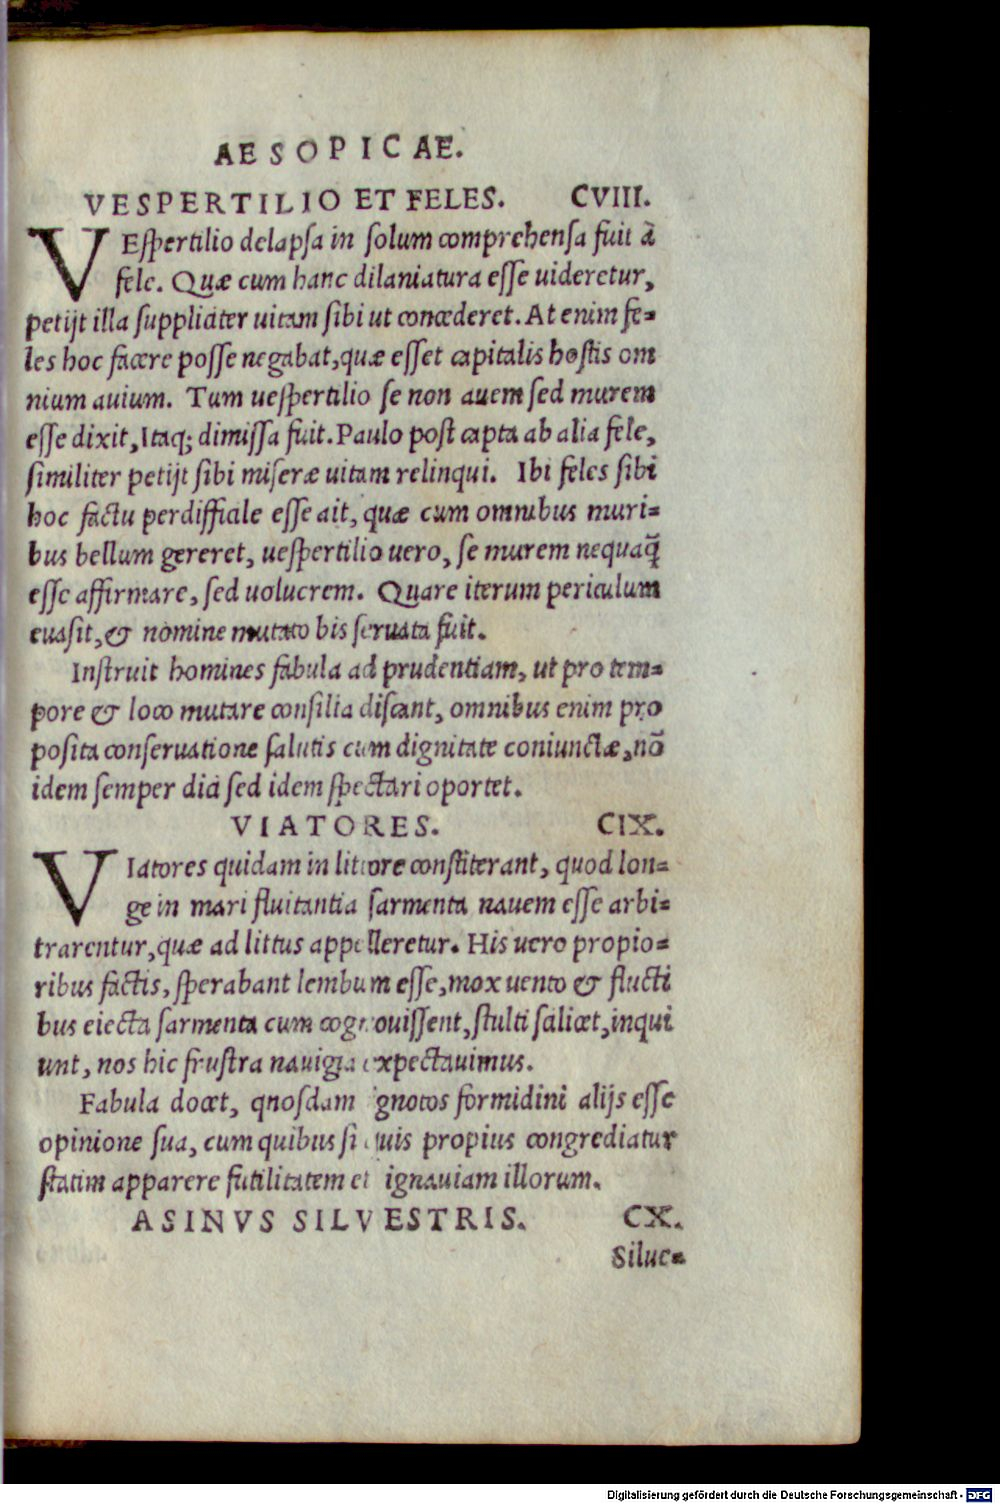 AESOPICAE.
VESPERTILIO ET FELES. CVIII.
VEſpertilio delapſa in ſolum comprehenſa fuit à
fele. Quæ cum hanc dilaniatura eſſe uideretur,
petijt illa ſuppliciter uitam ſibi ut concederet. At enim fe=
les hoc facere poſſe negabat, quæ eſſet capitalis hoſtis om
nium auium. Tum ueſpertilio ſe non auem ſed murem
eſſe dixit, Itaq; dimiſſa fuit. Paulo poſt capta ab alia fele,
ſimiliter petijt ſibi miſeræ uitam relinqui. Ibi feles ſibi
hoc factu perdifficile eſſe ait, quæ cum omnibus muri=
bus bellum gereret, ueſpertilio uero, ſe murem nequaq̃
eſſe affirmare, ſed uolucrem. Quare iterum periculum
euaſit, & nomine mutato bis ſeruata fuit.
Inſtruit homines fabula ad prudentiam, ut pro tem=
pore & loco mutare conſilia diſcant, omnibus enim pro
poſita conſeruatione ſalutis cum dignitate coniunctæ, nō
idem ſemper dici ſed idem ſpectari oportet.
VIATORES. CIX.
VIatores quidam in littore conſtiterant, quod lon=
ge in mari fluitantia ſarmenta nauem eſſe arbi=
trarentur, quæ ad littus appelleretur. His uero propio=
ribus factis, ſperabant lembum eſſe, mox uento & flucti
bus eiecta ſarmenta cum cognouiſſent, ſtulti ſcilicet, inqui
unt, nos hic fruſtra nauigia expectauimus.
Fabula docet, qnoſdam ignotos formidini alijs eſſe
opinione ſua, cum quibus ſi quis propius congrediatur
ſtatim apparere futilitatem et ignauiam illorum.
ASINVS SILVESTRIS. CX.
Silue=
Digitalisierung gefördert durch die Deutsche Forschungsgemeinschaft - DFG